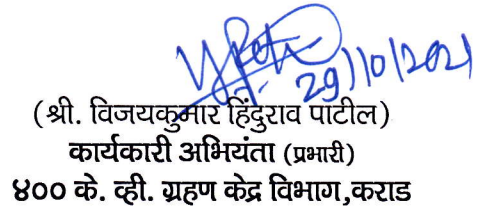 29/10/2021
(श्री. विजयकुमार हिंदुराव पाटील)
कार्यकारी अभियंता (प्रभारी)
४०० के. व्ही. ग्रहण केंद्र विभाग,कराड